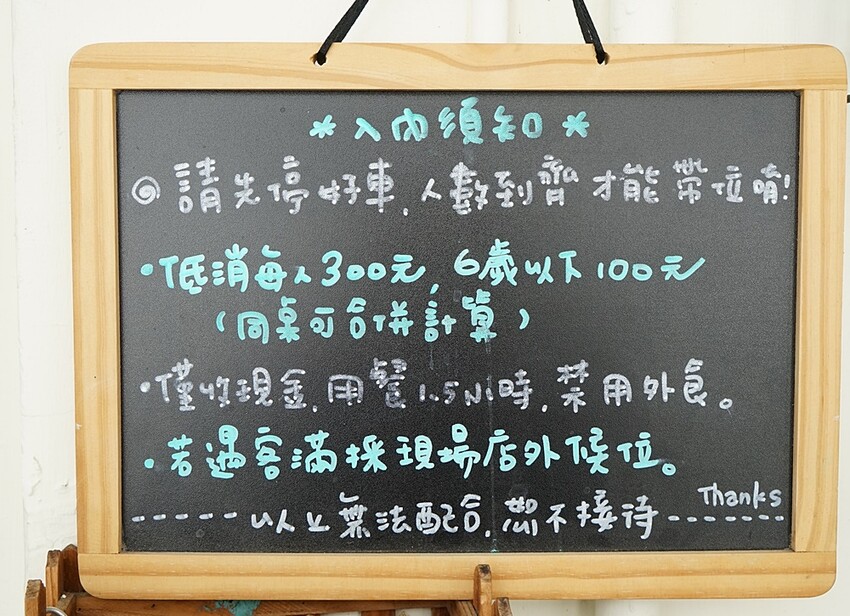 *入內須知*
◎請先停好車,人數到齊才能帶位唷!
•低消每人300元,6歲以下100元
(同桌可合併計算)
•僅收現金,用餐1.5小時,禁用外食。
•若遇客滿採現場店外候位。
Thanks
-----以人上無法配合,恕不接待-----